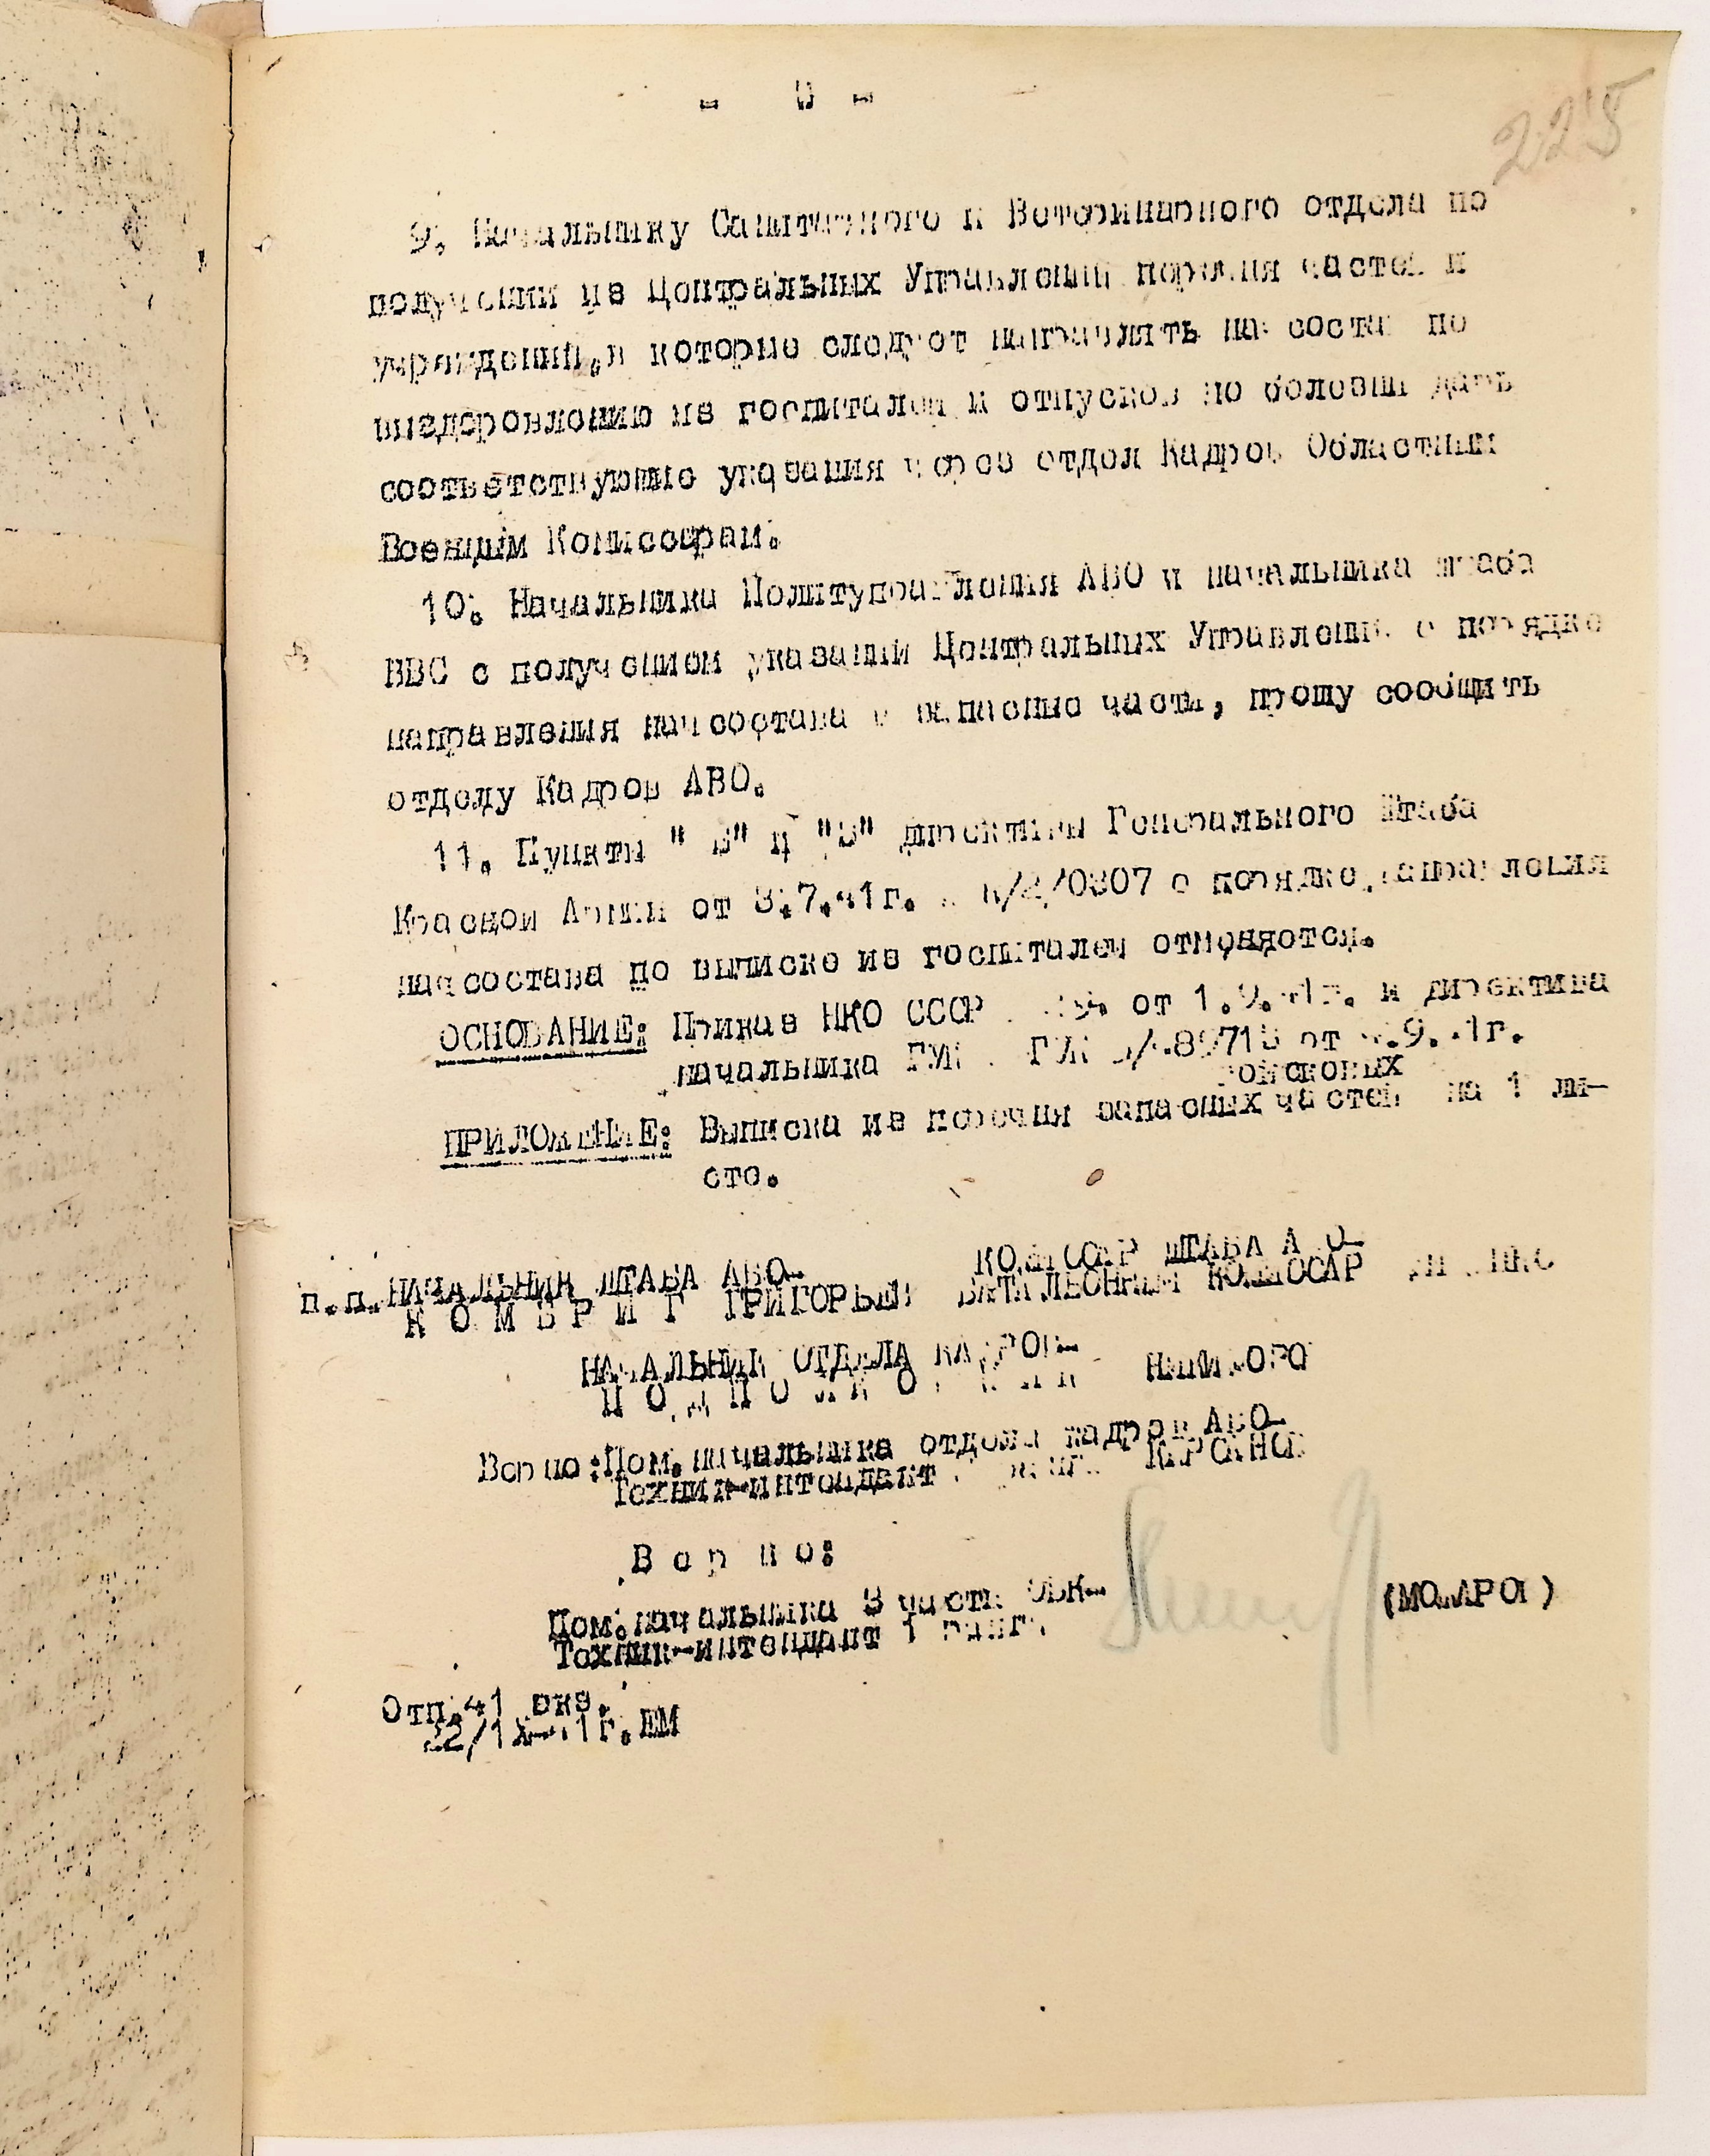 225
9. Начальнику Санитарного и Ветеринарного отдела по
получении из Центральных Управлений перечня частей и
учреждений, в которые следует направлять начсостав по
выздоровлению из госпиталей и отпусков по болезни дать
соответствующие указания через отдел Кадров Областным
Военным Комиссарам.
10. Начальника Политуправления АВО и начальника штаба
ВВС с получением указаний Центральных Управлений о порядке
направления начсостава в запасные части, прошу сообщить
отделу Кадров АВО.
11. Пункты и директивы Генерального Штаба
Красной Армии от 3.7.41г. о порядке направления
начсостава по выписке из госпиталей отменяются.
ОСНОВАНИЕ: Приказ НКО СССР от 1.9.41г. и директива
начальника от 9.41г.
войсковых
ПРИЛОЖЕНИЕ: Выписка из перечня запасных частей на 1 ли-
сте.
п.п. НАЧАЛЬНИК ШТАБА АВО- КОМИССАР ШТАБА АВО-
КОМБРИГ ГРИГОРЬЕВ БАТАЛЬОННЫЙ КОМИССАР
НАЧАЛЬНИК ОТДЕЛА КАДРОВ-
ПОДПОЛКОВНИК
Верно: Пом. начальника отдела кадров АВО-
Техник-интендант ранга
Верно:
Пом. начальника 3 части ОВК-
Техник-интендант 1 ранга
Отп. 41 экз.
22/IX-41г. ЕМ